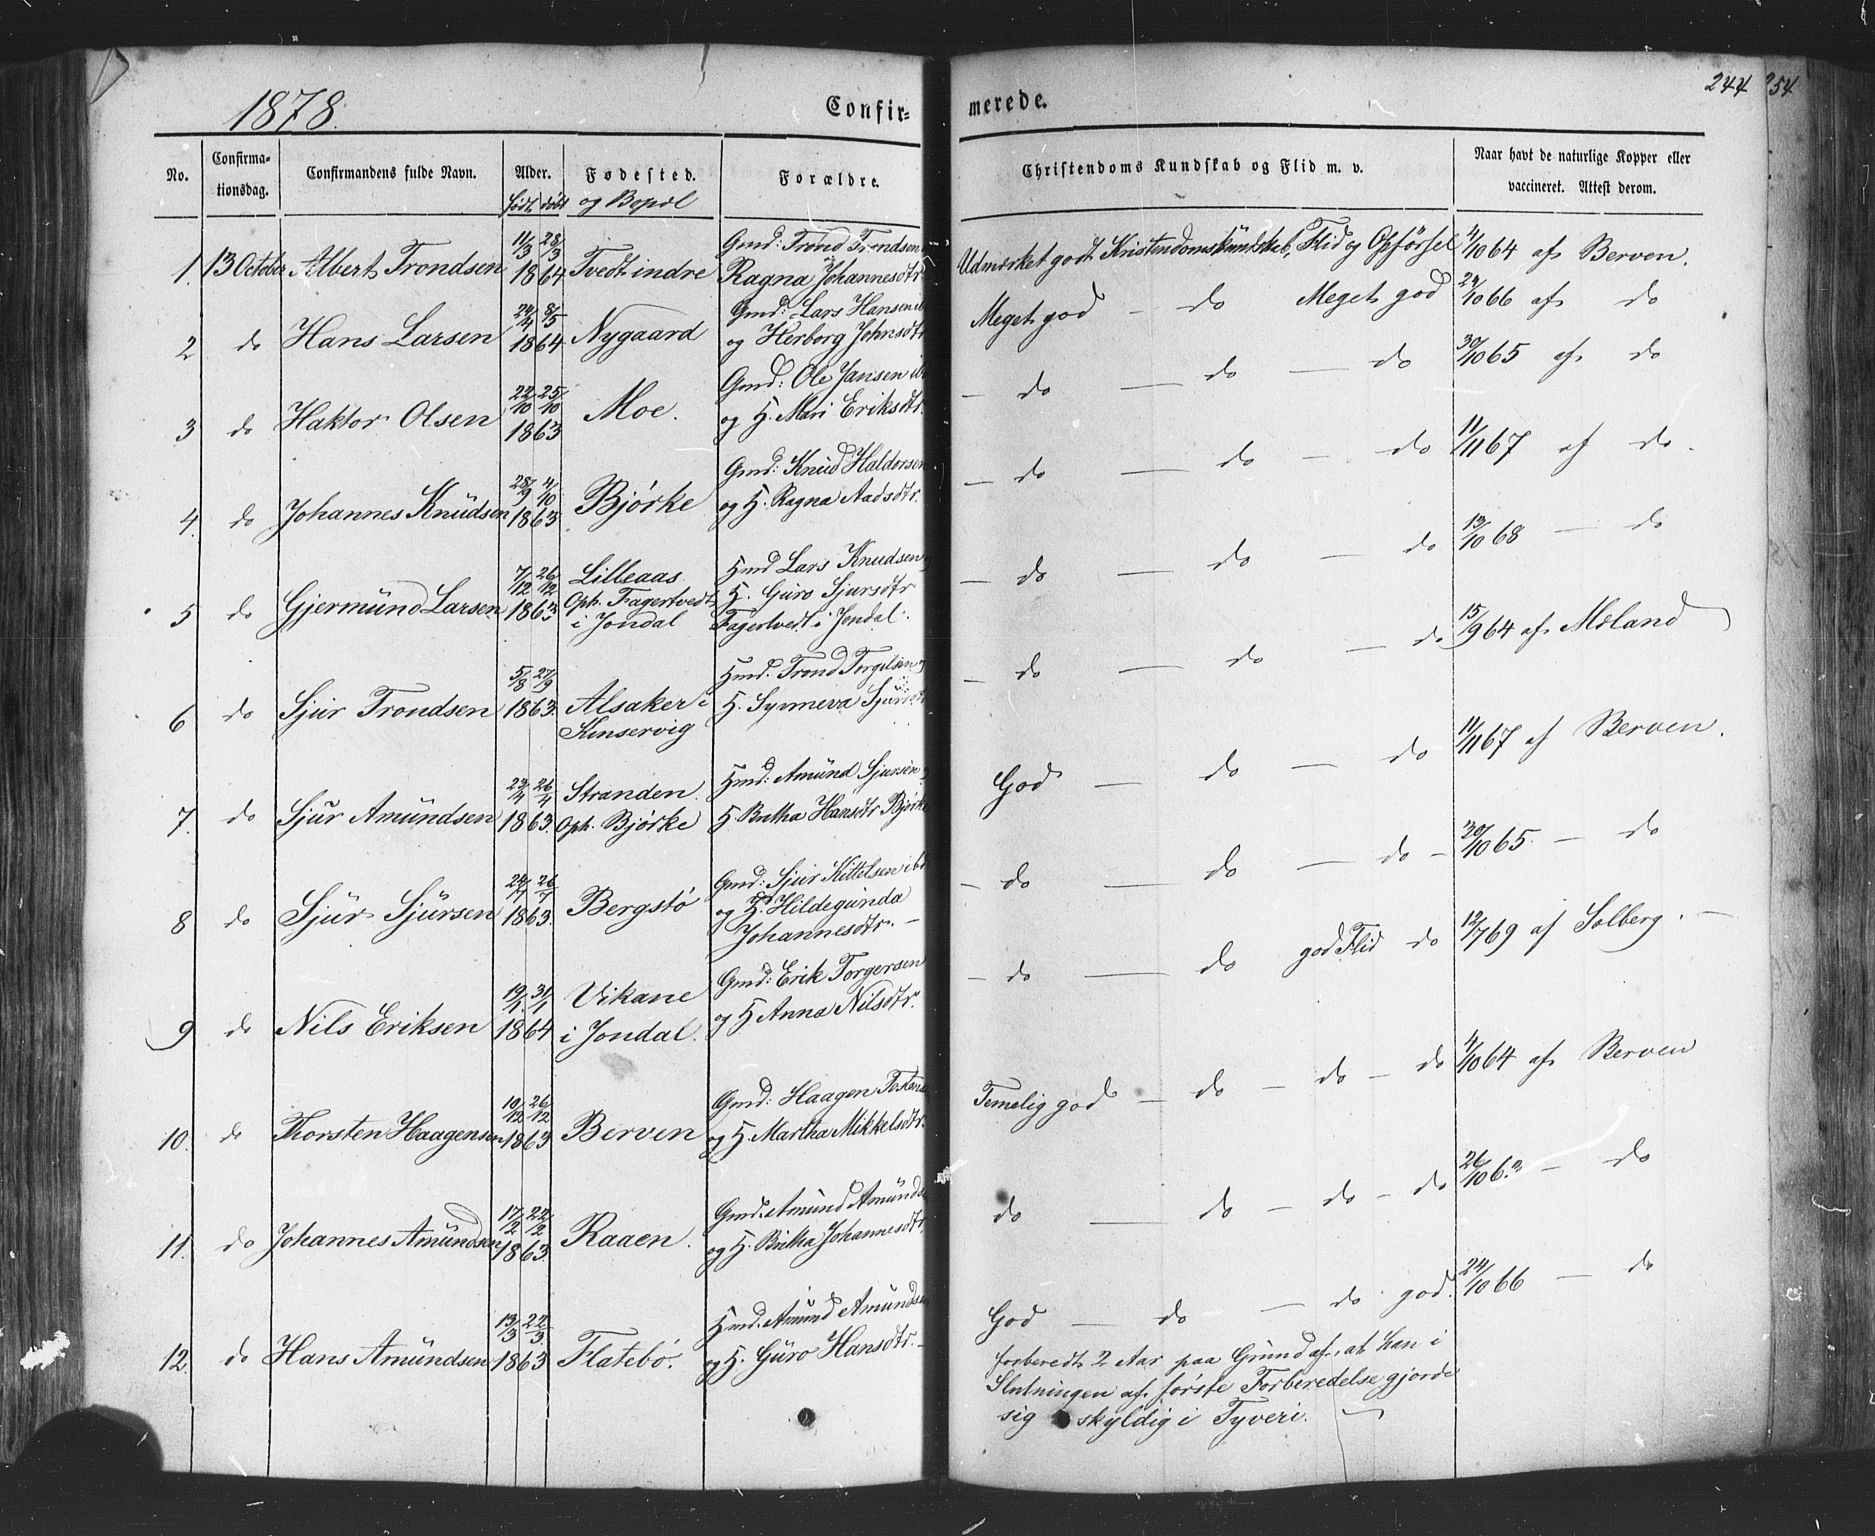 1878.
Confir-
merede.
244
254
No.
Confirma-
tionsdag.
Confirmandens fulde Navn.
Alder.
født døbt
Fødested.
og Bopæl
Forældre.
Christendoms Kundskab og Flid m. v.
Naar havt de naturlige Kopper eller
vaccineret. Attest derom.
1. 13 October Albert Trondsen 11/3 28/3 1864 Tvedt indre
Gmd: Trond Trondsen
Ragna Johannesdtr
Udmærket godt Kristendomskundskab, Flid og Opførsel 4/10 64 af Berven.
2 do Hans Larsen 24/4 8/5 1864 Nygaard
Gmd: Lars Hansen ib
og Herborg Johnsdtr
Meget god - do Meget god 24/10 66 af do
3 do Haktor Olsen 22/10 25/10 1863 Moe.
Gmd: Ole Jansen ib
og H. Mari Eriksdtr.
- do — do — do 30/10 65 af do
4. do Johannes Knudsen 28/9 4/10 1863 Bjørke
Gmd: Knud Haldorsen
og H. Ragna Aadsdtr.
- do — do — do 11/11 67 af do.
5 do Gjermund Larsen 7/12 26/12 1863 Lilleaas
Oph. Fagertvedt
i Jondal
Hmd Lars Knudsen
H. Guro Sjursdtr
Fagertvedt i Jondal.
- do — do — do 13/10 68 — do
6 do Sjur Trondsen 5/8 27/9 1863. Alsaker i
Kinservig
Hmd. Trond Torgilsen
H. Synneva Sjursdtr
- do — do — do 15/9 64 af Moland
7. do Sjur Amundsen 23/4 26/4 1863. Stranden.
Oph. Bjørke
Hmd: Amund Sjursen
H. Britha Hansdtr Bjørke
God — do — do 11/11 67 af Berven.
8 do Sjur Sjursen 1863. Bergstø
Gmd: Sjur Kittelsen ibd
og H. Hildegunda
Johannesdtr. -
- do — do — do - 30/10 65 - do
9 do Nils Eriksen 19/1 31/1 1864 Vikane
i Jondal.
Gmd: Erik Torgersen
og H Anna Nilsdtr.
- do — do god Flid do 12/7 69 af Solberg. -
10. do Thorsten Haagensen 10/12 26/12 1863 Berven
Gmd: Haagen
og H. Martha Mikkelsdtr.
Temelig god - do - do - do 4/10 64 af Berven
11. do Johannes Amundsen 17/2 22/2 1863. Raaen.
Gmd. Amund Amunds
og H. Britha Johannesdtr.
do — do - do - do 26/10 - do
12. do Hans Amundsen 13/3 22/3 1863 Flatebø.
Hmd. Amund Amundsen
og H. Guro Hansdtr. -
God — do — do god. 24/10 66 — do
forberedt 2 Aar paa Grund af, at han i
Slutningen af første Forberedelse gjorde
sig skyldig i Tyveri. -